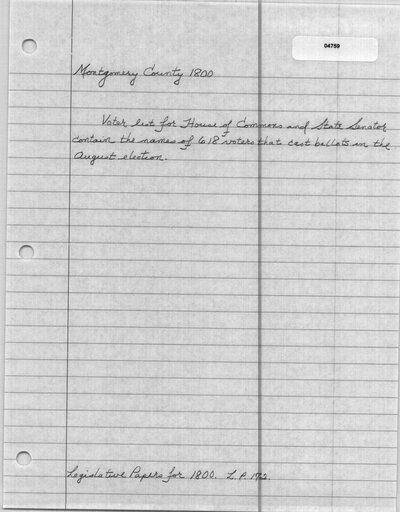 04759
Montgomery County 1800
Voter list for House of Commons and State Senator
contain the names of 618 voters that cast ballots in the
August election.
Legislative Papers for 1800. L.P. 172.